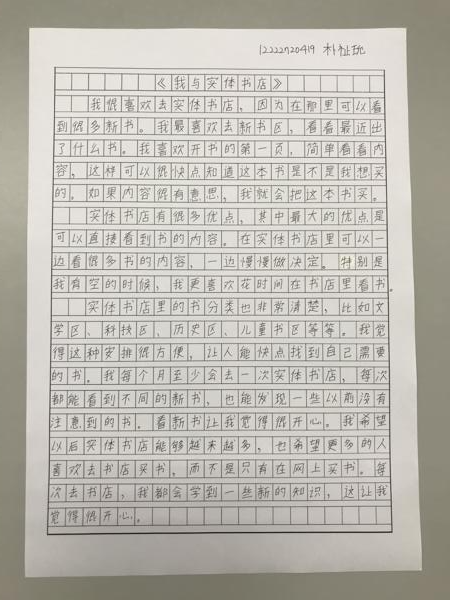 12222720419 朴祉玧
《我与实体书店》
我很喜欢去实体书店，因为在那里可以看
到很多新书。我最喜欢去新书区，看看最近出
了什么书。我喜欢开书的第一页，简单看看内
容，这样可以很快点知道这本书是不是我想买
的。如果内容很有意思，我就会把这本书买。
实体书店有很多优点，其中最大的优点是
可以直接看到书的内容。在实体书店里可以一
边看很多书的内容，一边慢慢做决定。特别是
我有空的时候，我更喜欢花时间在书店里看书。
实体书店里的书分类也非常清楚，比如文
学区、科技区、历史区、儿童书区等等。我觉
得这种安排很方便，让人能快点找到自己需要
的书。我每个月至少会去一次实体书店，每次
都能看到不同的新书，也能发现一些以前没有
注意到的书。看新书让我觉得很开心。我希望
以后实体书店能够越来越多，也希望更多的人
喜欢去书店买书，而不是只有在网上买书。每
次去书店，我都会学到一些新的知识，这让我
觉得很开心。